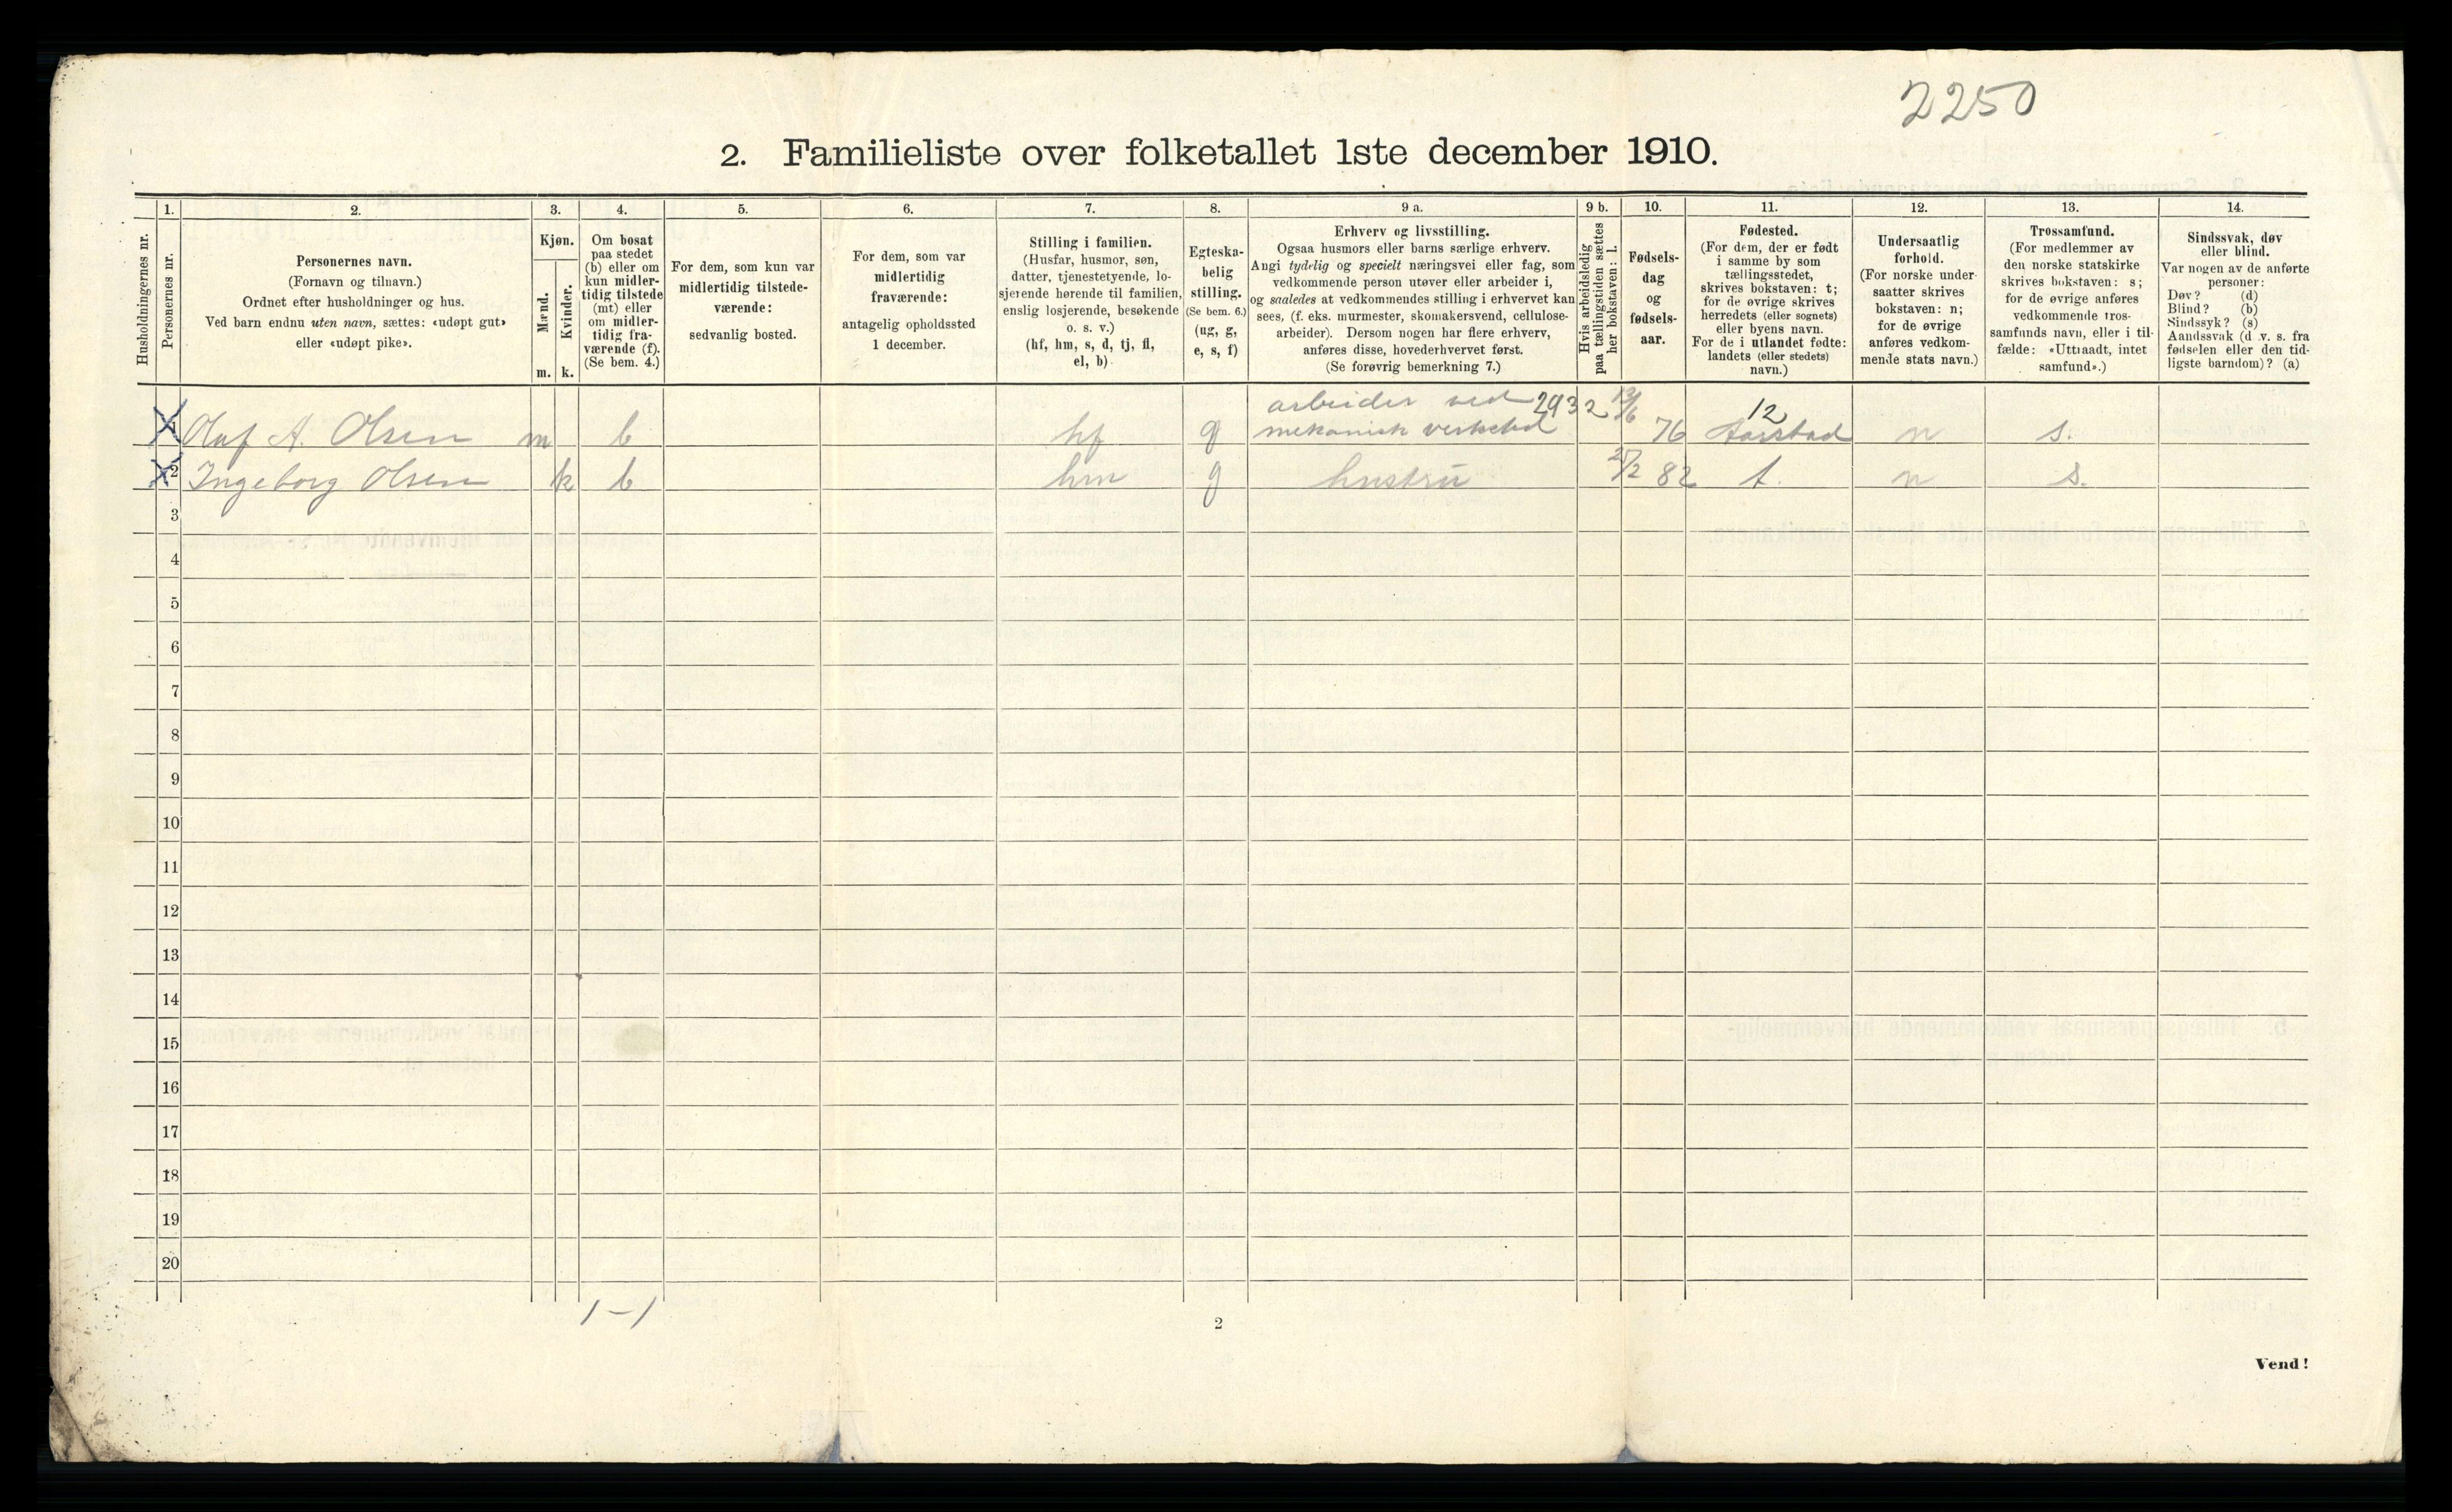 2250
2. Familieliste over folketallet 1ste december 1910.
Husholdningernes nr.
1.
Personernes nr.
2.
Personernes navn.
(Fornavn og tilnavn.)
Ordnet efter husholdninger og hus.
Ved barn endnu uten navn, sættes: «udøpt gut»
eller «udøpt pike».
3.
Kjøn.
Mænd.
Kvinder.
m. k.
4.
Om bosat
paa stedet
(b) eller om
kun midler-
tidig tilstede
(mt) eller
om midler-
tidig fra-
værende (f).
(Se bem. 4.)
5.
For dem, som kun var
midlertidig tilstede-
værende:
sedvanlig bosted.
6.
For dem, som var
midlertidig
fraværende:
antagelig opholdssted
1 december.
7.
Stilling i familien.
(Husfar, husmor, søn,
datter, tjenestetyende, lo-
sjerende hørende til familien,
enslig losjerende, besøkende
o. s. v.)
(hf, hm, s, d, tj, fl,
el, b)
8.
Egteska-
belig
stilling.
(Se bem. 6.)
(ug, g,
e, s, f)
9 a.
Erhverv og livsstilling.
Ogsaa husmors eller barns særlige erhverv.
Angi tydelig og specielt næringsvei eller fag, som
vedkommende person utøver eller arbeider i,
og saaledes at vedkommendes stilling i erhvervet kan
sees, (f. eks. murmester, skomakersvend, cellulose-
arbeider). Dersom nogen har flere erhverv,
anføres disse, hovederhvervet først.
(Se forøvrig bemerkning 7.)
9 b.
Hvis arbeidsledig
paa tællingstiden sættes
her bokstaven: l.
10.
Fødsels-
dag
og
fødsels-
aar.
11.
Fødested.
(For dem, der er født
i samme by som
tællingsstedet,
skrives bokstaven: t;
for de øvrige skrives
herredets (eller sognets)
eller byens navn.
For de i utlandet fødte:
landets (eller stedets)
navn.)
12.
Undersaatlig
forhold.
(For norske under-
saatter skrives
bokstaven: n;
for de øvrige
anføres vedkom-
mende stats navn.)
13.
Trossamfund.
(For medlemmer av
den norske statskirke
skrives bokstaven: s;
for de øvrige anføres
vedkommende tros-
samfunds navn, eller i til-
fælde: «Uttraadt, intet
samfund».)
14.
Sindssvak, døv
eller blind.
Var nogen av de anførte
personer:
Døv? (d)
Blind? (b)
Sindssyk? (s)
Aandssvak (d. v. s. fra
fødselen eller den tid-
ligste barndom)? (a)
1 Oluf A. Olsen m b hf g arbeider ved mekanisk verksted 2932 76 12 Aarstad n s.
2 Ingeborg Olsen k b hm g hustru 82 t. n s.
3
4
5
6
7
8
9
10
11
12
13
14
15
16
17
18
19
20
1-1
2
Vend!